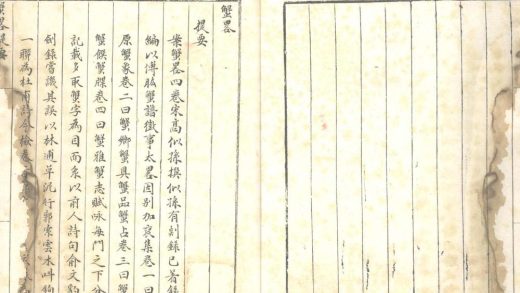 蟹畧
提要
案蟹畧四卷宋髙似孫撰似孫有剡錄已著錄
編以傅肱蟹譜徵事太畧因别加裒集卷一曰
原蟹象卷二曰蟹鄉蟹具蟹品蟹占卷三曰蟹
蟹饌蟹牒卷四曰蟹雅蟹志賦咏每門之下分
記載多取蟹字為目而系以前人詩句俞文豹
劍錄嘗譏其誤以林逋草泥行郭索雲木叫鉤
一聯為杜甫詩今檢卷
蟹畧提要